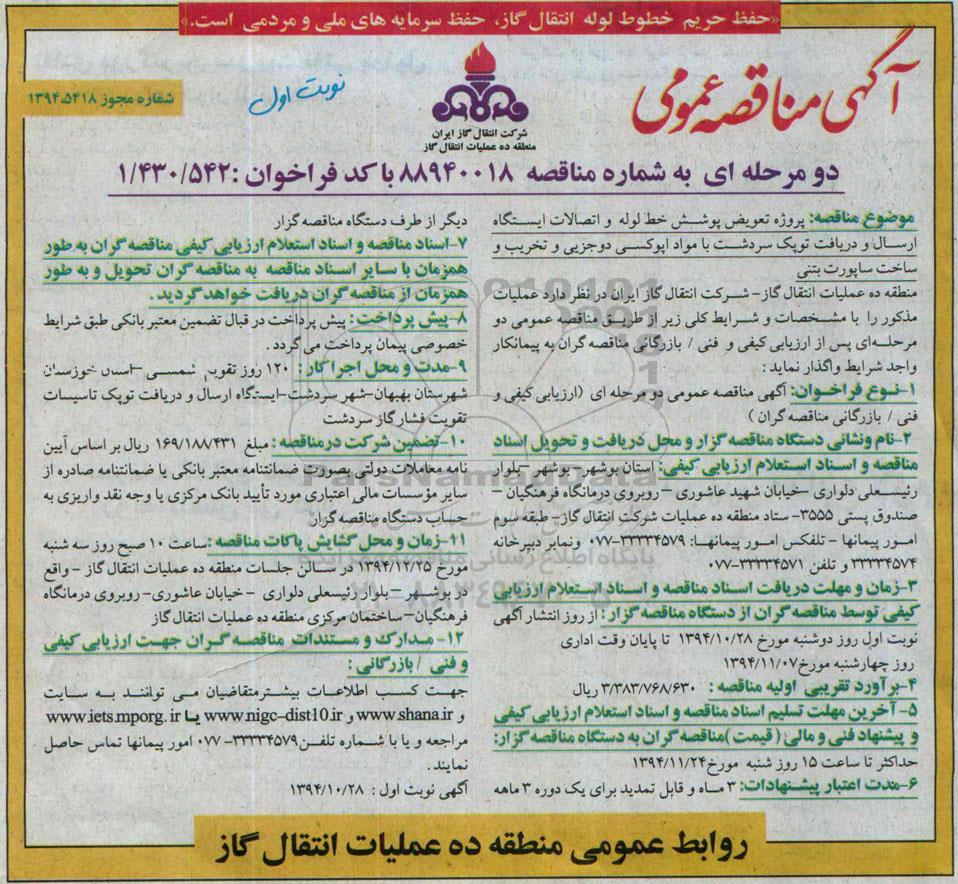 «حفظ حریم خطوط لوله انتقال گاز، حفظ سرمایه های ملی و مردمی است.»
آگهی مناقصه عمومی
نوبت اول
شماره مجوز ۱۳۹۴،۵۴۱۸
شرکت انتقال گاز ایران
منطقه ده عملیات انتقال گاز
دو مرحله ای به شماره مناقصه ۸۸۹۴۰۰۱۸ با کد فراخوان :۱/۴۳۰/۵۴۲
موضوع مناقصه: پروژه تعویض پوشش خط لوله و اتصالات ایستگاه
ارسال و دریافت توپک سردشت با مواد اپوکسی دوجزیی و تخریب و
ساخت ساپورت بتنی
منطقه ده عملیات انتقال گاز- شرکت انتقال گاز ایران در نظر دارد عملیات
مذکور را با مشخصات و شرایط کلی زیر از طریق مناقصه عمومی دو
مرحله‌ای پس از ارزیابی کیفی و فنی / بازرگانی مناقصه گران به پیمانکار
واجد شرایط واگذار نماید :
۱-نوع فراخوان: آگهی مناقصه عمومی دو مرحله ای (ارزیابی کیفی و
فنی / بازرگانی مناقصه گران )
۲-نام ونشانی دستگاه مناقصه گزار و محل دریافت و تحویل اسناد
مناقصه و اسناد استعلام ارزیابی کیفی: استان بوشهر- بوشهر –بلوار
رئیسعلی دلواری –خیابان شهید عاشوری – روبروی درمانگاه فرهنگیان –
صندوق پستی ۳۵۵۵- ستاد منطقه ده عملیات شرکت انتقال گاز- طبقه سوم
امور پیمانها – تلفکس امور پیمانها: ۳۳۳۳۴۵۷۹-۰۷۷ ونمابر دبیرخانه
۳۳۳۳۴۵۷۴ و تلفن ۳۳۳۳۴۵۷۱-۰۷۷
۳-زمان و مهلت دریافت اسناد مناقصه و اسناد استعلام ارزیابی
کیفی توسط مناقصه گران از دستگاه مناقصه گزار : از روز انتشار آگهی
نوبت اول روز دوشنبه مورخ ۱۳۹۴/۱۰/۲۸ تا پایان وقت اداری
روز چهارشنبه مورخ۱۳۹۴/۱۱/۰۷
۴-برآورد تقریبی اولیه مناقصه : ۳/۳۸۳/۷۶۸/۶۳۰ ریال
۵-آخرین مهلت تسلیم اسناد مناقصه و اسناد استعلام ارزیابی کیفی
و پیشنهاد فنی و مالی ( قیمت )مناقصه گران به دستگاه مناقصه گزار:
حداکثر تا ساعت ۱۵ روز شنبه مورخ۱۳۹۴/۱۱/۲۴
۶-مدت اعتبار پیشنهادات: ۳ ماه و قابل تمدید برای یک دوره ۳ ماهه
دیگر از طرف دستگاه مناقصه گزار
۷-اسناد مناقصه و اسناد استعلام ارزیابی کیفی مناقصه گران به طور
همزمان با سایر اسناد مناقصه به مناقصه گران تحویل و به طور
همزمان از مناقصه گران دریافت خواهد گردید .
۸-پیش پرداخت : پیش پرداخت در قبال تضمین معتبر بانکی طبق شرایط
خصوصی پیمان پرداخت می گردد .
۹-مدت و محل اجرا کار : ۱۲۰ روز تقویم شمسی –استان خوزستان
شهرستان بهبهان-شهر سردشت-ایستگاه ارسال و دریافت توپک تاسیسات
تقویت فشار گاز سردشت
۱۰-تضمین شرکت در مناقصه : مبلغ ۱۶۹/۱۸۸/۴۳۱ ریال بر اساس آیین
نامه معاملات دولتی بصورت ضمانتنامه معتبر بانکی یا ضمانتنامه صادره از
سایر مؤسسات مالی اعتباری مورد تأیید بانک مرکزی یا وجه نقد واریزی به
حساب دستگاه مناقصه گزار
۱۱-زمان و محل گشایش پاکات مناقصه :ساعت ۱۰ صبح روز سه شنبه
مورخ ۱۳۹۴/۱۲/۲۵ در سالن جلسات منطقه ده عملیات انتقال گاز - واقع
در بوشهر – بلوار رئیسعلی دلواری - خیابان عاشوری- روبروی درمانگاه
فرهنگیان-ساختمان مرکزی منطقه ده عملیات انتقال گاز
۱۲- مدارک و مستندات مناقصه گران جهت ارزیابی کیفی
و فنی / بازرگانی :
جهت کسب اطلاعات بیشترمتقاضیان می توانند به سایت
www.iets.mporg.ir یا www.nigc-dist10.ir و www.shana.ir و
مراجعه و یا با شماره تلفن۳۳۳۳۴۵۷۹-۰۷۷ امور پیمانها تماس حاصل
نمایند .
آگهی نوبت اول : ۱۳۹۴/۱۰/۲۸
روابط عمومی منطقه ده عملیات انتقال گاز
ParsNamadData